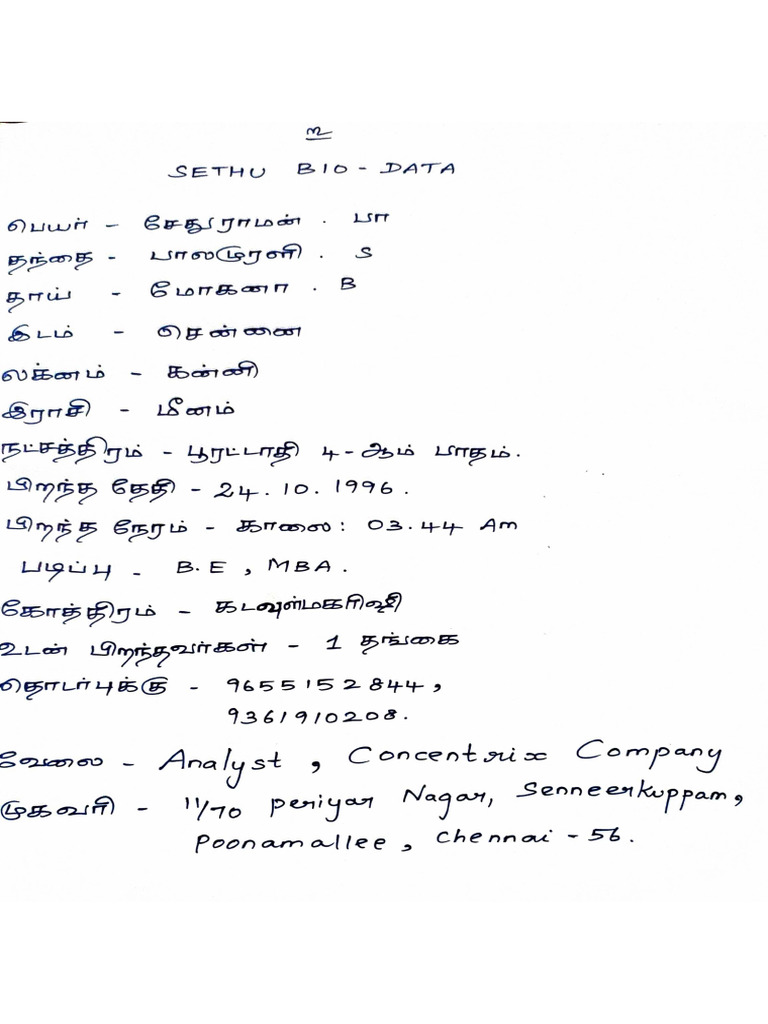 உ
SETHU BIO-DATA
பெயர் - சேதுராமன். பா
தந்தை - பாலமுரளி. S
தாய் - மோகனா. B
இடம் - சென்னை
லக்னம் - கன்னி
இராசி - மீனம்
நட்சத்திரம் - பூரட்டாதி 4-ஆம் பாதம்.
பிறந்த தேதி - 24.10.1996.
பிறந்த நேரம் - காலை: 03.44 Am
படிப்பு - B.E, MBA.
கோத்திரம் - கடவுள்மகரிஷி
உடன் பிறந்தவர்கள் - 1 தங்கை
தொடர்புக்கு - 9655152844,
9361910208.
வேலை - Analyst, Concentrix Company
முகவரி - 11/70 periyar Nagar, Senneerkuppam,
Poonamallee, chennai - 56.